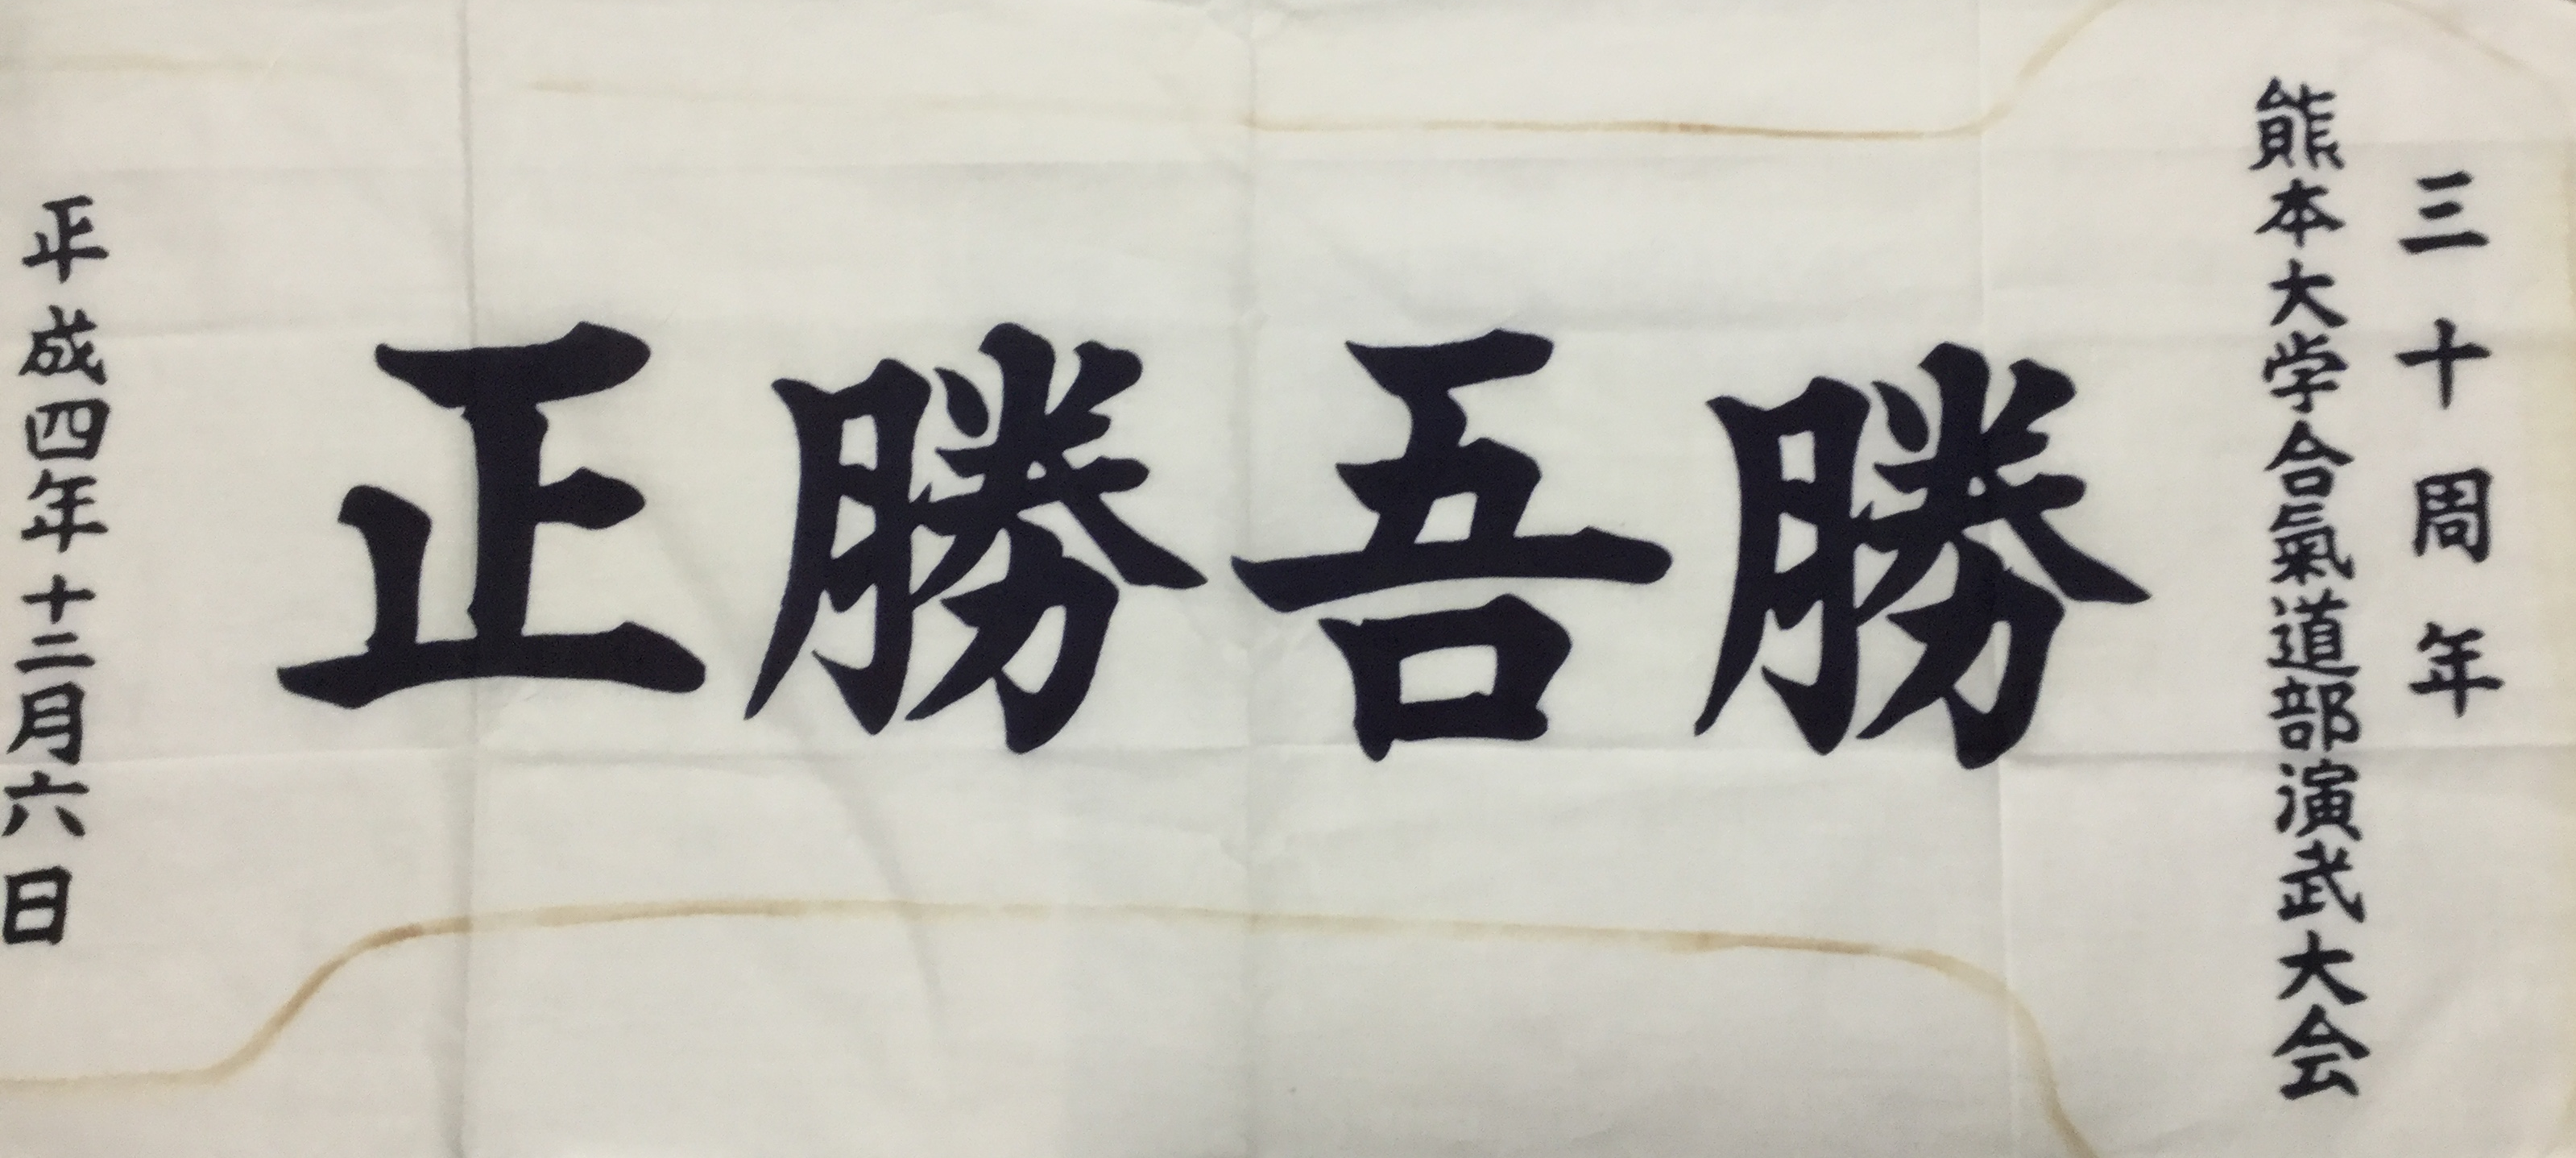 三十周年
熊本大学合氣道部演武大会
正勝吾勝
平成四年十二月六日